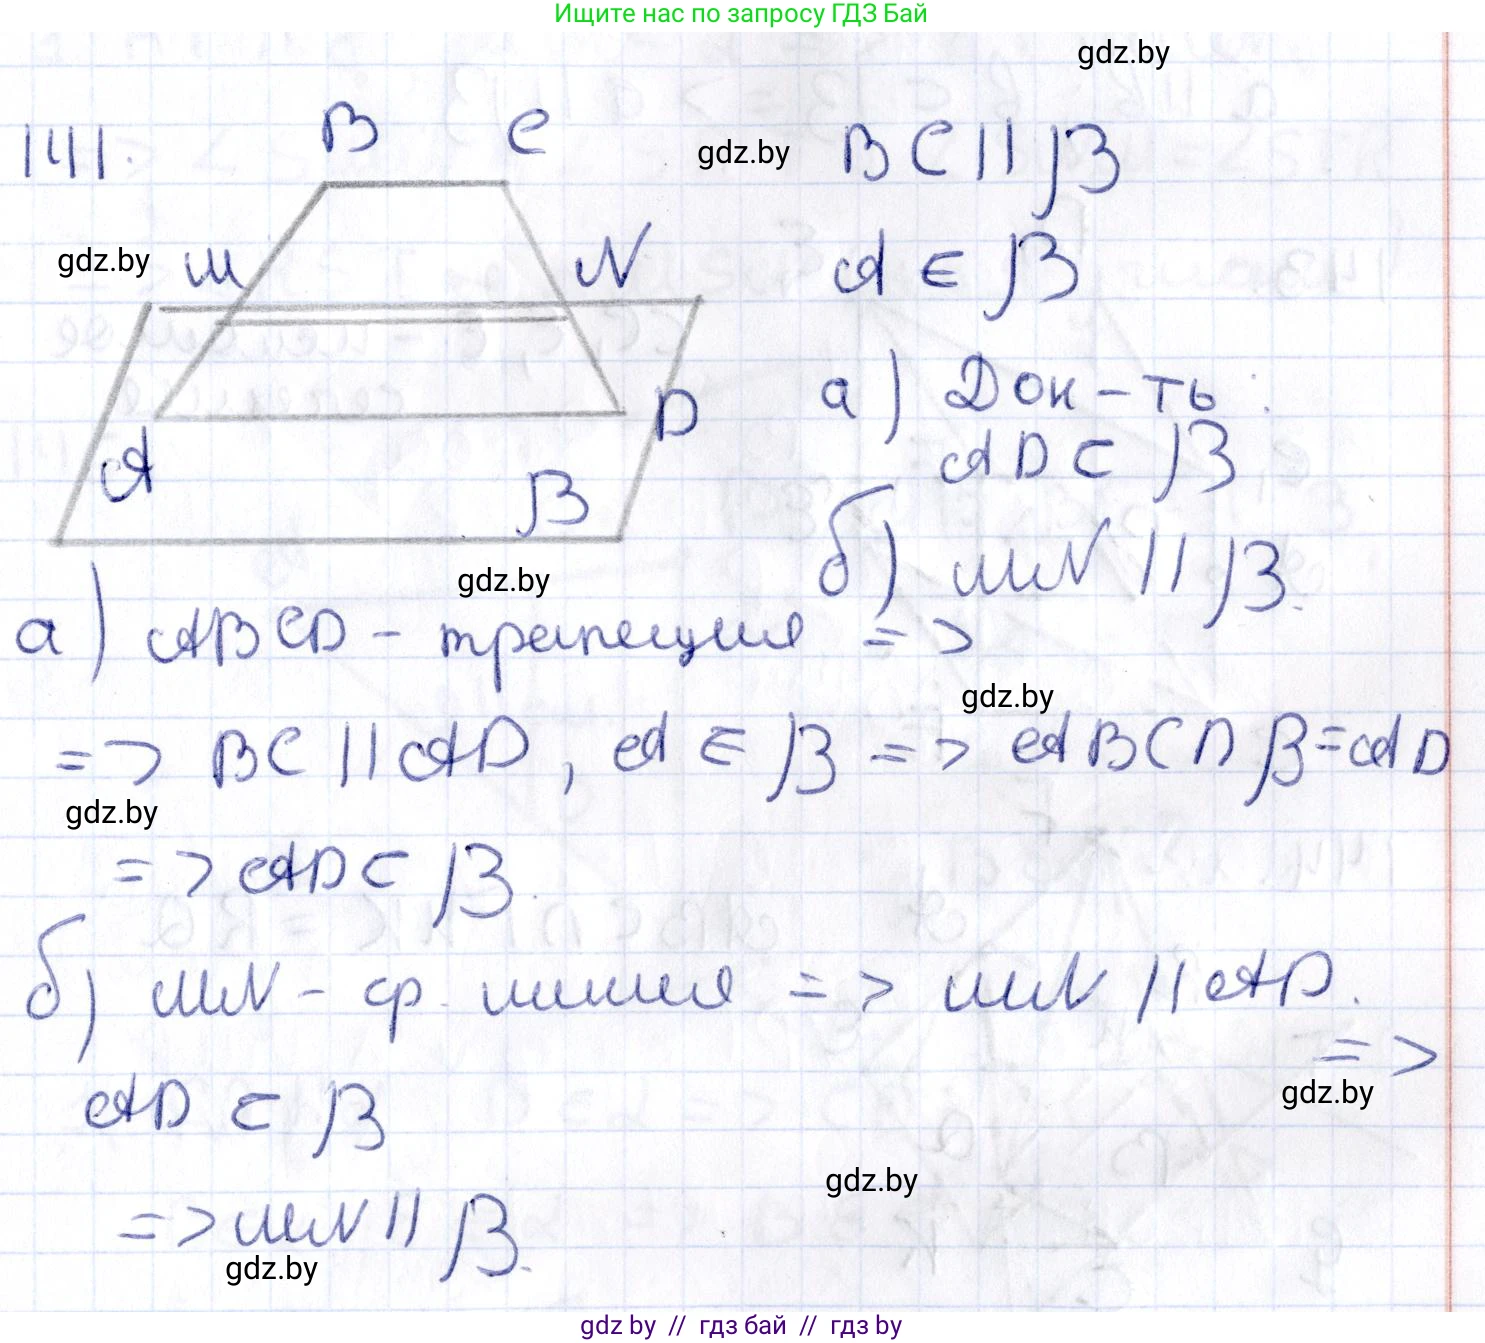 Ищите нас по запросу ГДЗ Бай
gdz.by
141.
B C
gdz.by
BC || β
gdz.by
M N
A ∈ β
а) Док-ть:
AD ⊂ β
A D
β
б) MN || β.
gdz.by
а) ABCD - трапеция =>
gdz.by
=> BC || AD, A ∈ β => ABC ∩ β = AD
gdz.by
=> AD ⊂ β.
б) MN - ср. линия => MN || AD.
=>
AD ⊂ β
gdz.by
gdz.by
=> MN || β.
gdz.by
gdz by // гдз бай // гдз by